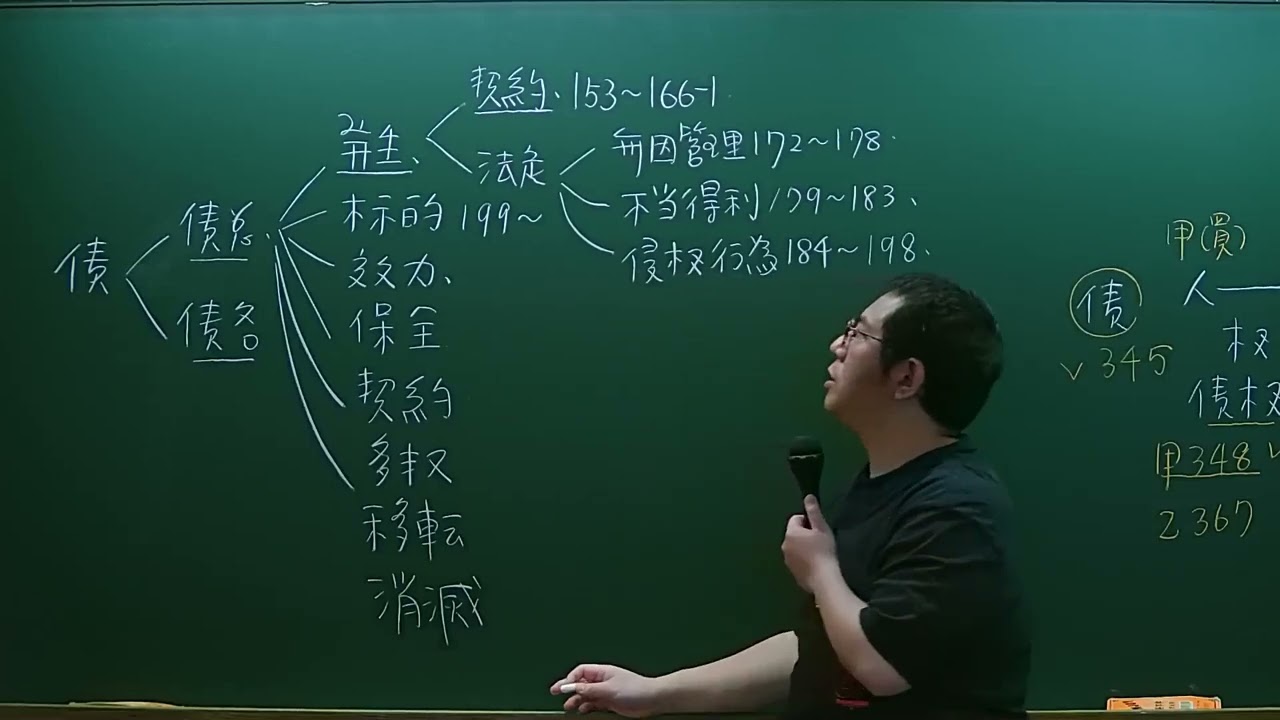 債
債总、
債各
発生、
契約、153~166-1
法定
無因管理172~178.
不当得利179~183、
侵权行為184~198.
标的 199~
效力、
保全
契約
多权
移転
消滅
甲(買)
債
人
权
v 345
債权
甲348 v
乙367